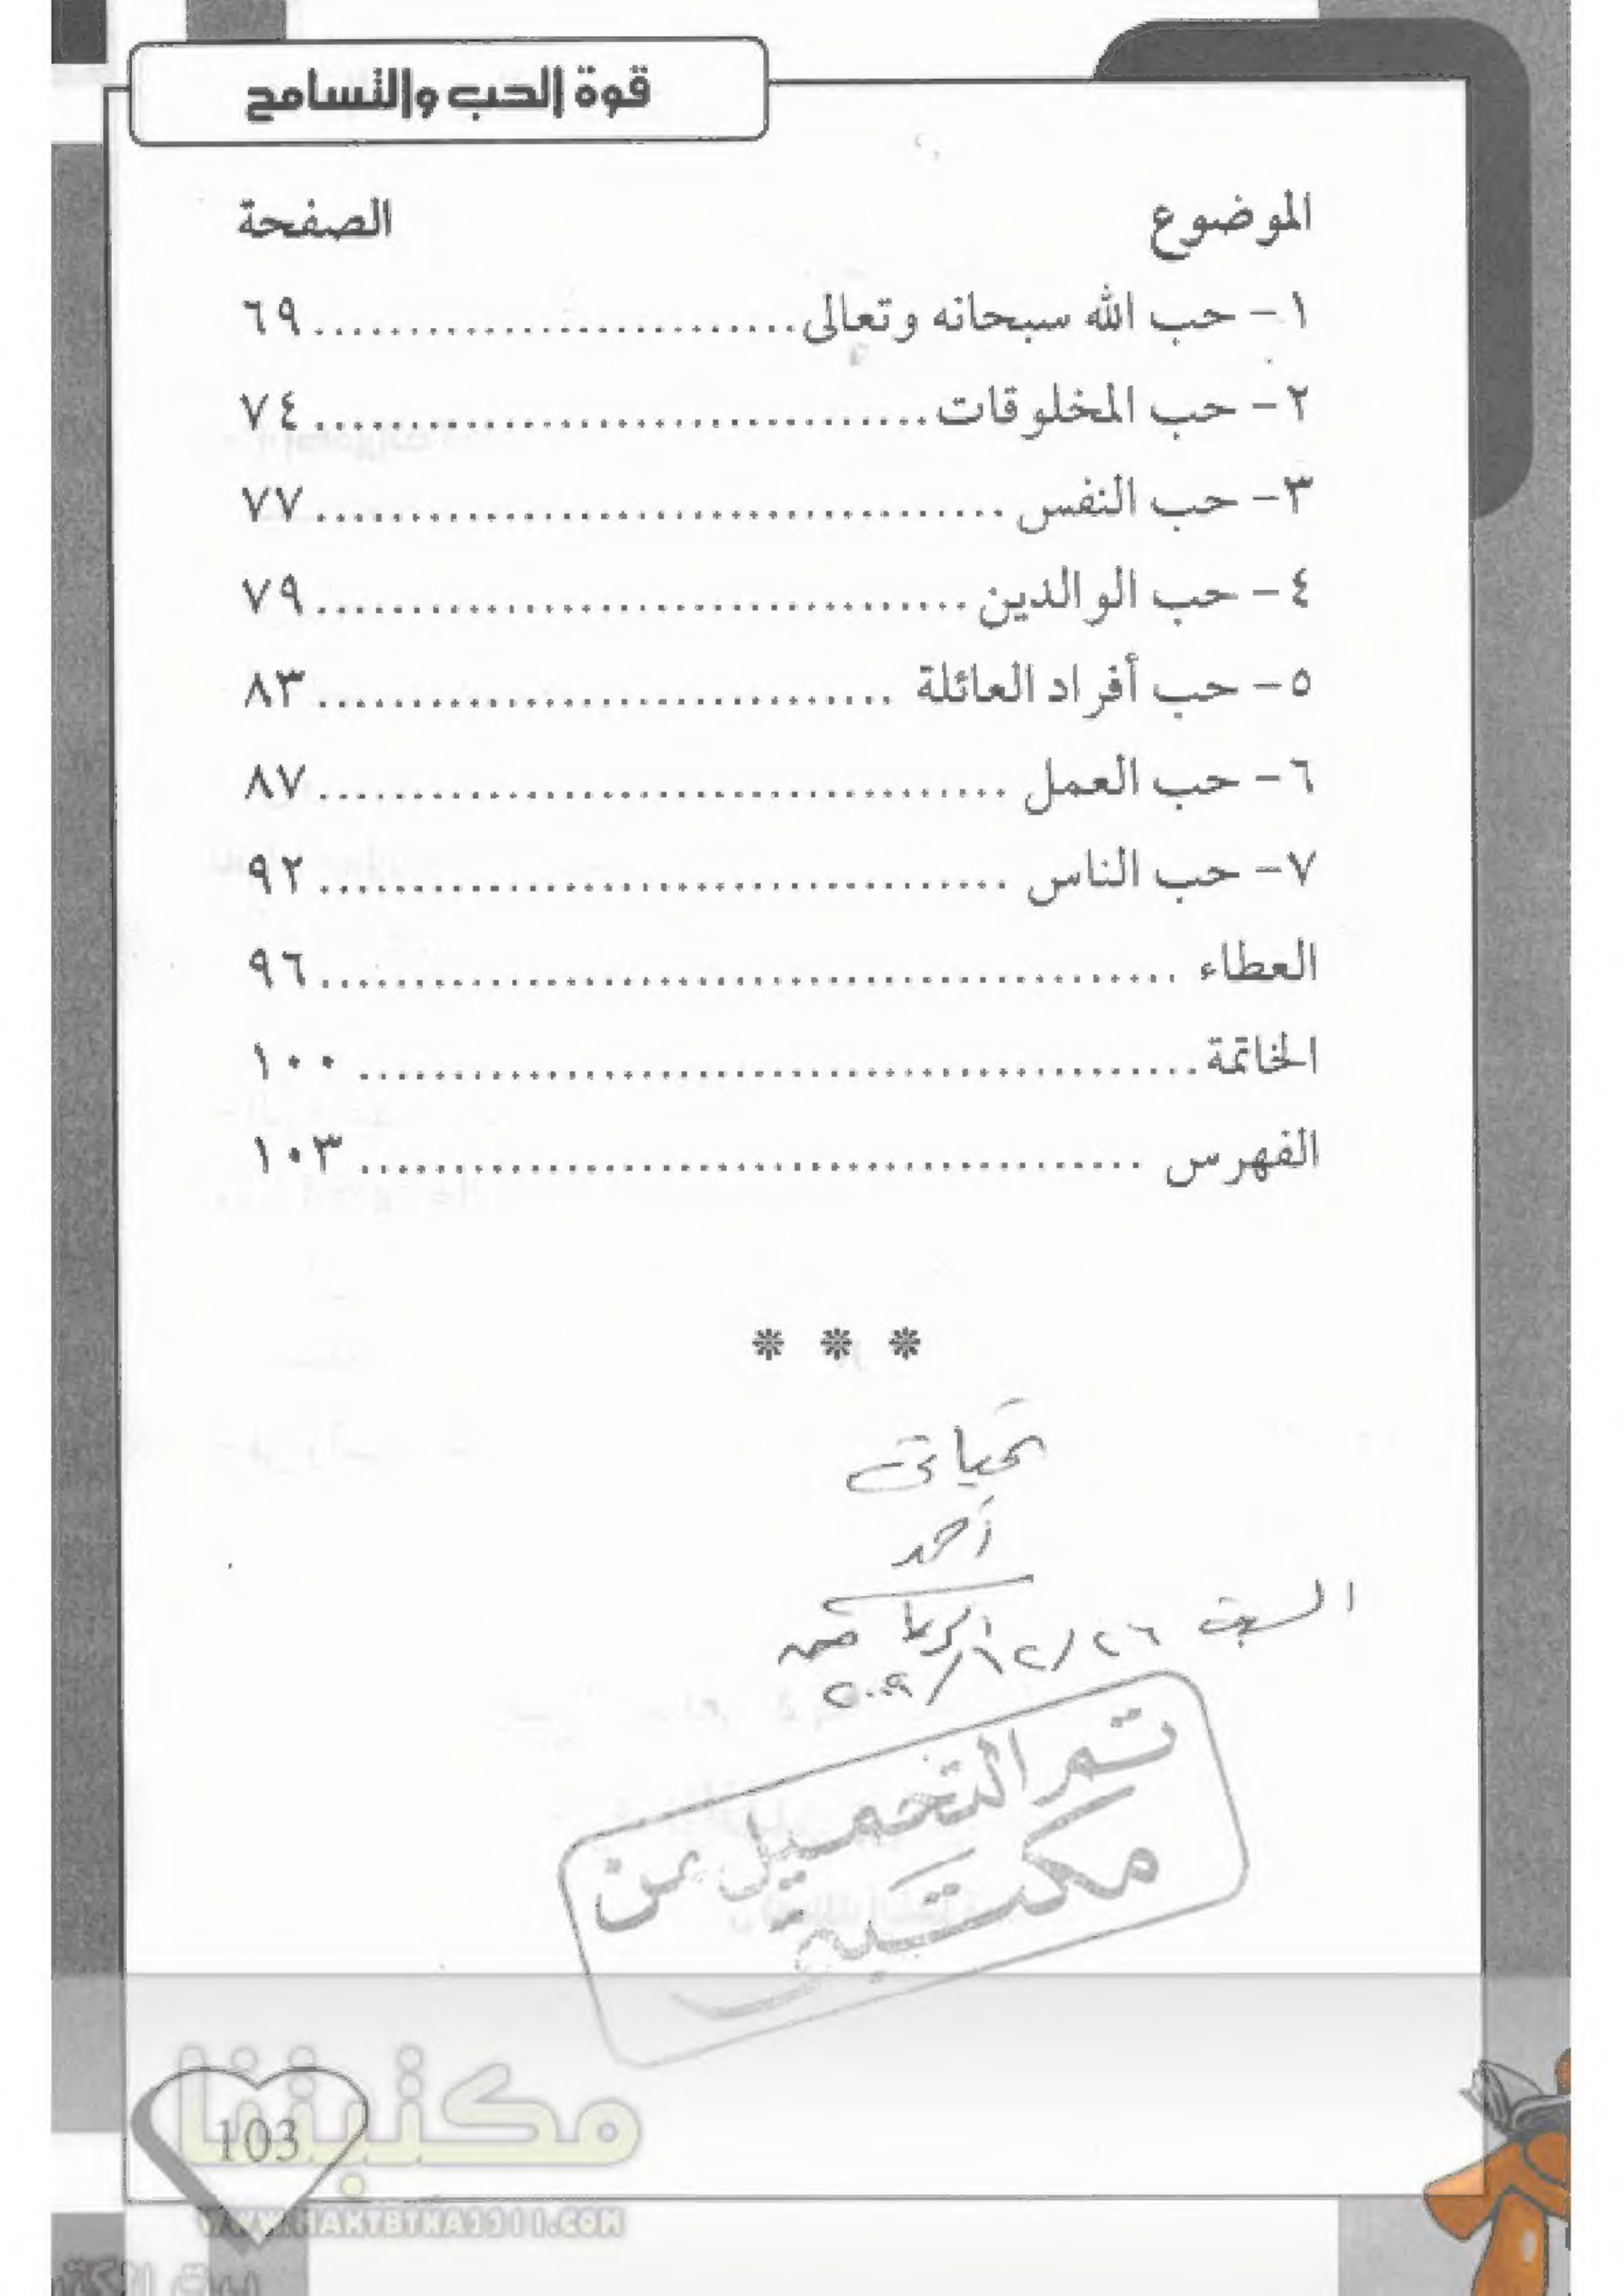 قوة الحب والتسامح
الموضوع الصفحة
١- حب الله سبحانه وتعالى ........................... ٦٩
٢- حب المخلوقات ................................. ٧٤
٣- حب النفس ..................................... ٧٧
٤- حب الوالدين ................................... ٧٩
٥- حب أفراد العائلة ............................... ٨٣
٦- حب العمل ..................................... ٨٧
٧- حب الناس ..................................... ٩٢
العطاء .............................................. ٩٦
الخاتمة ............................................. ١٠٠
الفهرس .......................................... ١٠٣
* * *
تحياتى
أحمد
السبت ٢٦/١٢/
٢٠٠٩
تم التحميل من
مكتبة
مكتبتنا
103
WWW.MAKTBTNA2211.COM